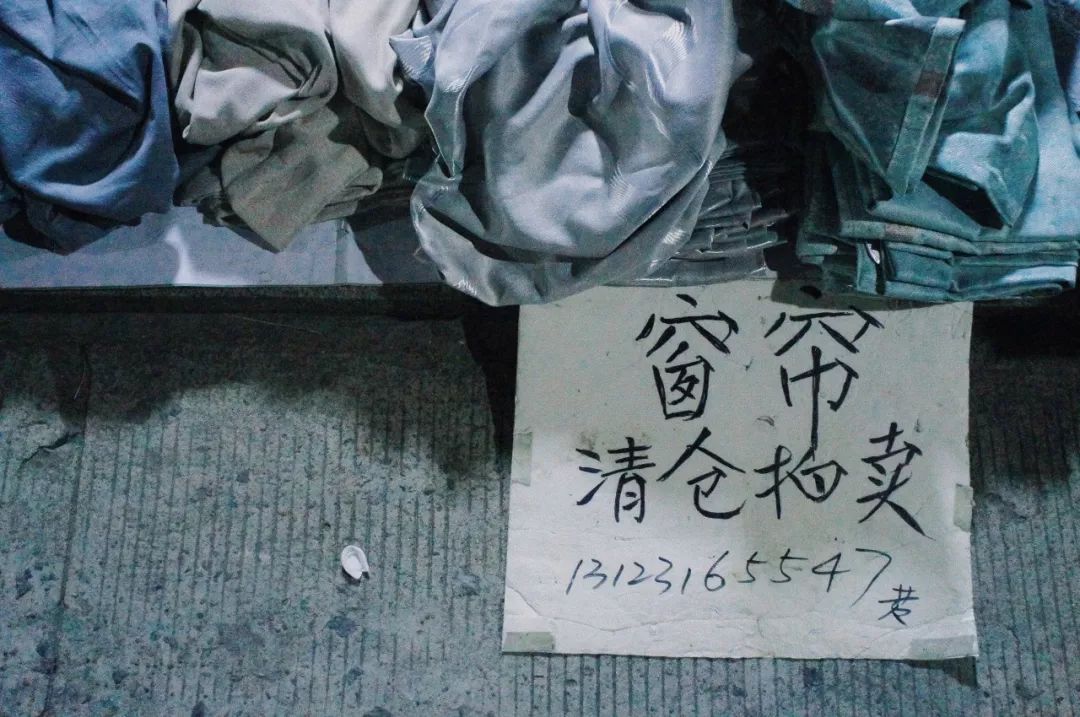 窗帘
清仓拍卖
13123165547
黄